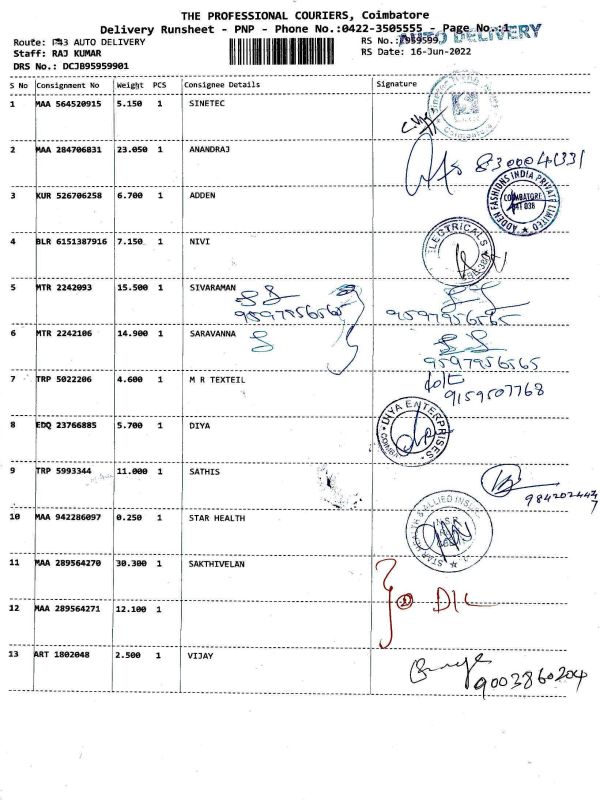 THE PROFESSIONAL COURIERS, Coimbatore
Delivery Runsheet - PNP - Phone No.:0422-3505555 - Page No.:1
AUTO DELIVERY
Route: 143 AUTO DELIVERY RS No.:7959599
Staff: RAJ KUMAR RS Date: 16-Jun-2022
DRS No.: DCJB95959901
S No Consignment No Weight PCS Consignee Details Signature
1 MAA 564520915 5.150 1 SINETEC
2 MAA 284706831 23.050 1 ANANDRAJ 8300041331
3 KUR 526706258 6.700 1 ADDEN
ADDEN FASHIONS INDIA PRIVATE LIMITED
COIMBATORE
641 038
4 BLR 6151387916 7.150 1 NIVI
ELECTRICALS
5 MTR 2242093 15.500 1 SIVARAMAN
9597956565 9597956565
6 MTR 2242106 14.900 1 SARAVANNA
9597956565
7 TRP 5022206 4.600 1 M R TEXTEIL
9159507768
8 EDQ 23766885 5.700 1 DIYA
DIYA ENTERPRISES
9 TRP 5993344 11.000 1 SATHIS
10 MAA 942286097 0.250 1 STAR HEALTH
STAR HEALTH & ALLIED INSU
11 MAA 289564270 30.300 1 SAKTHIVELAN
D/L
12 MAA 289564271 12.100 1
13 ART 1802048 2.500 1 VIJAY
9003860204